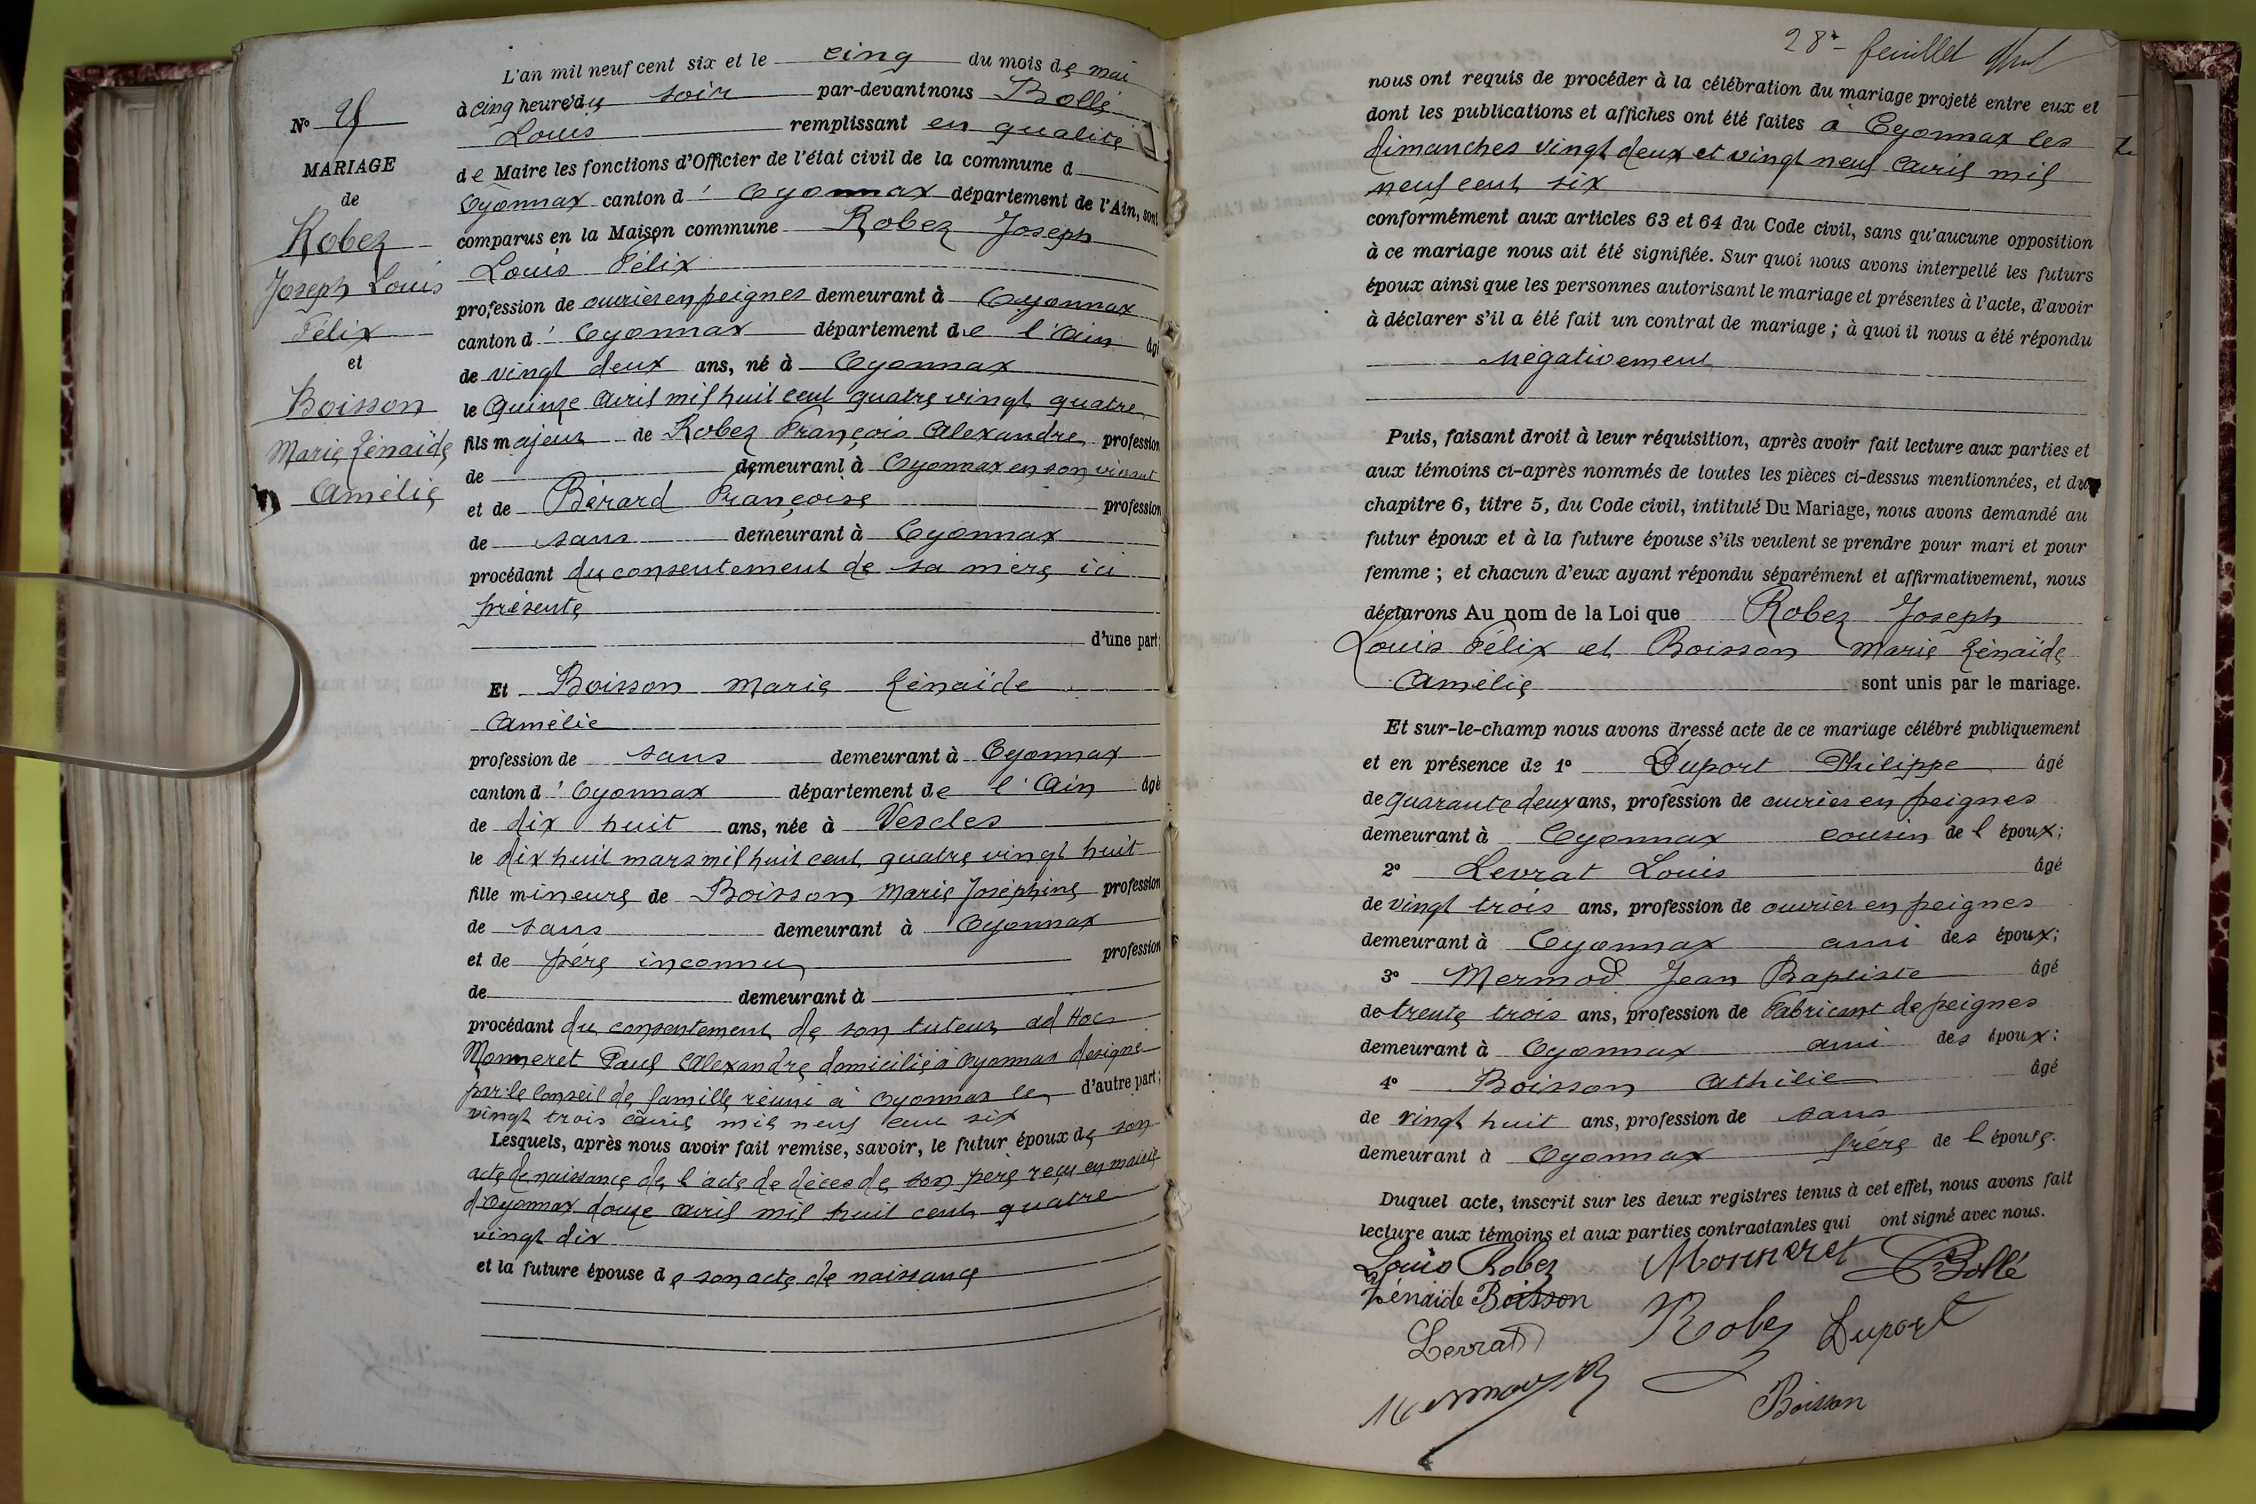 N°
MARIAGE
de
Robez
Joseph Louis
Félix
et
Boisson
Marie Zénaïde
Amélie
L'an mil neuf cent six et le cinq du mois de mai
à cinq heures du soir par-devant nous Bollé
Louis remplissant en qualité
de Maire les fonctions d'Officier de l'état civil de la commune d
Oyonnax canton d' Oyonnax département de l'Ain, sont
comparus en la Maison commune Robez Joseph
Louis Félix
profession de ouvrier en peignes demeurant à Oyonnax
canton d' Oyonnax département de l'Ain âgé
de vingt deux ans, né à Oyonnax
le Quinze Avril mil huit cent quatre vingt quatre
fils majeur de Robez François Alexandre profession
de demeurant à Oyonnax en son vivant
et de Bérard Françoise profession
de sans demeurant à Oyonnax
procédant du consentement de sa mère ici
présente
d'une part;
Et Boisson Marie Zénaïde
Amélie
profession de sans demeurant à Oyonnax
canton d' Oyonnax département de l'Ain âgé
de dix huit ans, née à Vescles
le dix huit mars mil huit cent quatre vingt huit
fille mineure de Boisson Marie Joséphine profession
de sans demeurant à Oyonnax
et de père inconnu profession
de demeurant à
procédant du consentement de son tuteur ad Hoc
Monneret Paul Alexandre domicilié à Oyonnax désigné
par le Conseil de famille réuni à Oyonnax le d'autre part;
vingt trois avril mil neuf cent six
Lesquels, après nous avoir fait remise, savoir, le futur époux de son
acte de naissance de l'acte de décès de son père reçu en mairie
d'Oyonnax douze avril mil huit cent quatre
vingt dix
et la future épouse de son acte de naissance
28e feuillet
nous ont requis de procéder à la célébration du mariage projeté entre eux et
dont les publications et affiches ont été faites à Oyonnax les
dimanches vingt deux et vingt neuf avril mil
neuf cent six
conformément aux articles 63 et 64 du Code civil, sans qu'aucune opposition
à ce mariage nous ait été signifiée. Sur quoi nous avons interpellé les futurs
époux ainsi que les personnes autorisant le mariage et présentes à l'acte, d'avoir
à déclarer s'il a été fait un contrat de mariage; à quoi il nous a été répondu
Négativement
Puis, faisant droit à leur réquisition, après avoir fait lecture aux parties et
aux témoins ci-après nommés de toutes les pièces ci-dessus mentionnées, et du
chapitre 6, titre 5, du Code civil, intitulé Du Mariage, nous avons demandé au
futur époux et à la future épouse s'ils veulent se prendre pour mari et pour
femme; et chacun d'eux ayant répondu séparément et affirmativement, nous
déclarons Au nom de la Loi que Robez Joseph
Louis Félix et Boisson Marie Zénaïde
Amélie sont unis par le mariage.
Et sur-le-champ nous avons dressé acte de ce mariage célébré publiquement
et en présence de 1° Duport Philippe âgé
de quarante deux ans, profession de ouvrier en peignes
demeurant à Oyonnax cousin de l'époux;
2° Levrat Louis âgé
de vingt trois ans, profession de ouvrier en peignes
demeurant à Oyonnax ami des époux;
3° Mermod Jean Baptiste âgé
de trente trois ans, profession de Fabricant de peignes
demeurant à Oyonnax ami des époux:
4° Boisson Athilie âgé
de vingt huit ans, profession de sans
demeurant à Oyonnax frère de l'épouse.
Duquel acte, inscrit sur les deux registres tenus à cet effet, nous avons fait
lecture aux témoins et aux parties contractantes qui ont signé avec nous.
Louis Robez Monneret Bollé
Zénaïde Boisson
Levrat Robez Duport
Mermod
Boisson